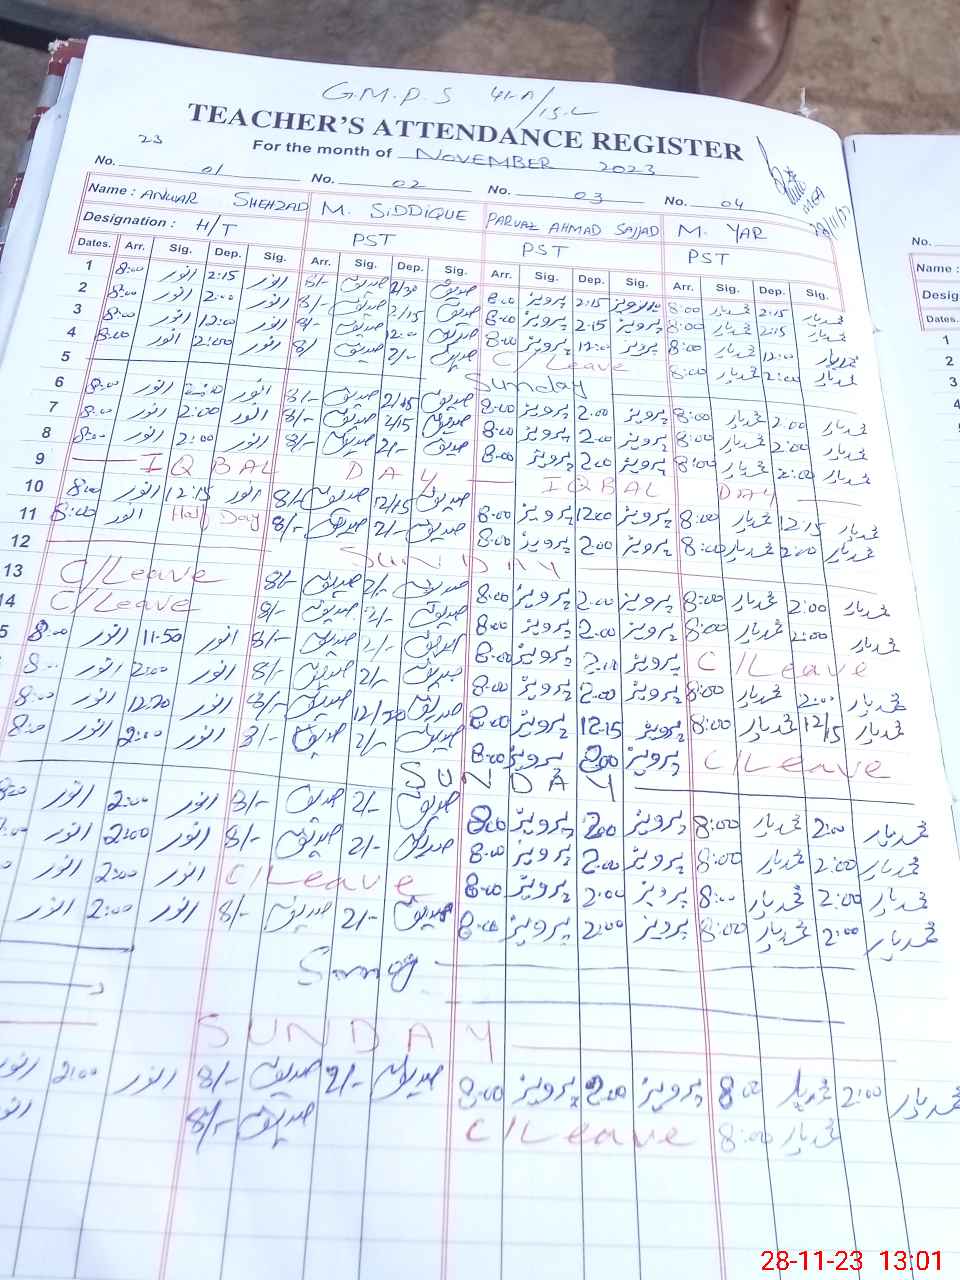 G.M.P.S 41-A/15-L
TEACHER'S ATTENDANCE REGISTER
23 For the month of NOVEMBER 2023
No. 01 No. 02 No. 03 No. 04
Name : ANWAR SHEHZAD M. SIDDIQUE PARVAZ AHMAD SAJJAD M. YAR
Designation : H/T PST PST PST
Dates. Arr. Sig. Dep. Sig. Arr. Sig. Dep. Sig. Arr. Sig. Dep. Sig. Arr. Sig. Dep. Sig.
1 8:00 انور 2:15 انور 8/- صدیق 2/30 صدیق 8:00 پرویز 2:15 پرویز 8:00 محمد یار 2:15 محمد یار
2 8:00 انور 2:00 انور 8/- صدیق 2/15 صدیق 8:00 پرویز 2:15 پرویز 8:00 محمد یار 2:15 محمد یار
3 8:00 انور 12:00 انور 8/- صدیق صدیق 8:00 پرویز 12:00 پرویز 8:00 محمد یار 12:00 محمد یار
4 8:00 انور 2:00 انور 8/ صدیق 2/- صدیق C/Leave 8:00 محمد یار 2:00 محمد یار
5 Sunday
6 8:00 انور 2:00 انور 8/- صدیق 2/15 صدیق 8:00 پرویز 2:00 پرویز 8:00 محمد یار 2:00 محمد یار
7 8:00 انور 2:00 انور 8/- صدیق 2/15 صدیق 8:00 پرویز 2:00 پرویز 8:00 محمد یار 2:00 محمد یار
8 8:00 انور 2:00 انور 8/- صدیق 2/- صدیق 8:00 پرویز 2:00 پرویز 8:00 محمد یار 2:00 محمد یار
9 IQBAL DAY IQBAL DAY
10 8:00 انور 12:15 انور 8/- صدیق 12/15 صدیق 8:00 پرویز 12:00 پرویز 8:00 محمد یار 12:15 محمد یار
11 8:00 انور Half Day 8/- صدیق 2/- صدیق 8:00 پرویز 2:00 پرویز 8:00 محمد یار 2:00 محمد یار
12 SUNDAY
13 C/Leave 8/- صدیق 2/- صدیق 8:00 پرویز 2:00 پرویز 8:00 محمد یار 2:00 محمد یار
14 C/Leave 8/- صدیق 2/- صدیق 8:00 پرویز 2:00 پرویز 8:00 محمد یار 2:00 محمد یار
5 8:00 انور 11:50 انور 8/- صدیق 2/- صدیق 8:00 پرویز 2:00 پرویز C/Leave
8:00 انور 2:00 انور 8/- صدیق 2/- صدیق 8:00 پرویز 2:00 پرویز 8:00 محمد یار 2:00 محمد یار
8:00 انور 12:20 انور 8/- صدیق 12/20 صدیق 8:00 پرویز 12:15 پرویز 8:00 محمد یار 12/15 محمد یار
8:00 انور 2:00 انور 8/- صدیق 2/- صدیق 8:00 پرویز 2:00 پرویز C/Leave
SUNDAY
8:00 انور 2:00 انور 8/- صدیق 2/- صدیق 8:00 پرویز 2:00 پرویز 8:00 محمد یار 2:00 محمد یار
انور 2:00 انور 8/- صدیق 2/- صدیق 8:00 پرویز 2:00 پرویز 8:00 محمد یار 2:00 محمد یار
انور 2:00 انور C/Leave 8:00 پرویز 2:00 پرویز 8:00 محمد یار 2:00 محمد یار
انور 2:00 انور 8/- صدیق 2/- صدیق 8:00 پرویز 2:00 پرویز 8:00 محمد یار 2:00 محمد یار
Smog
SUNDAY
انور 2:00 انور 8/- صدیق 2/- صدیق 8:00 پرویز 2:00 پرویز 8:00 محمد یار 2:00 محمد یار
انور 8/- صدیق C/Leave 8:00 محمد یار
No.
Name :
Desig
Dates.
1
2
3
4
28-11-23 13:01